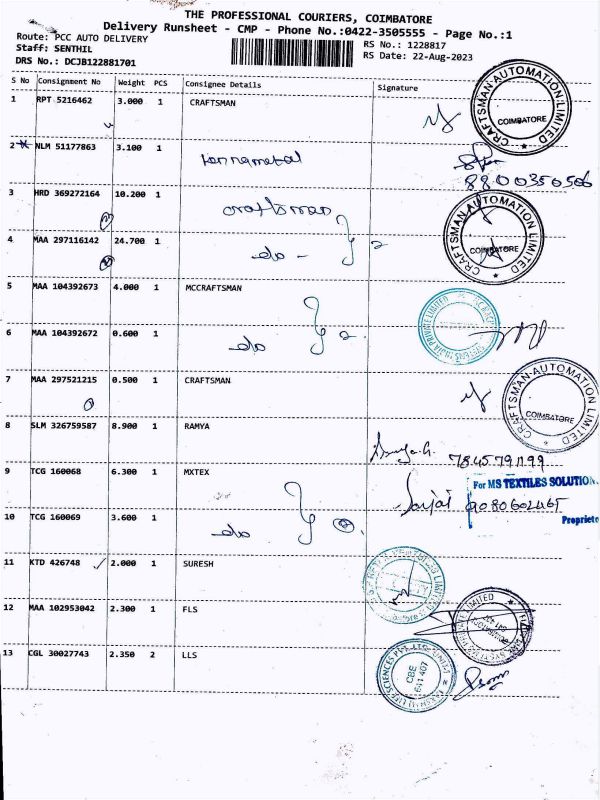 THE PROFESSIONAL COURIERS, COIMBATORE
Delivery Runsheet - CMP - Phone No.:0422-3505555 - Page No.:1
Route: PCC AUTO DELIVERY
RS No.: 1228817
Staff: SENTHIL
RS Date: 22-Aug-2023
DRS No.: DCJB122881701
S No Consignment No Weight PCS Consignee Details Signature
1 RPT 5216462 3.000 1 CRAFTSMAN
CRAFTSMAN AUTOMATION LIMITED COIMBATORE
2 NLM 51177863 3.100 1 kennametal
8800350506
3 HRD 369272164 10.200 1 craftsman
CRAFTSMAN AUTOMATION LIMITED COIMBATORE
4 MAA 297116142 24.700 1 do - 2
5 MAA 104392673 4.000 1 MCCRAFTSMAN
PRIVATE LIMITED
6 MAA 104392672 0.600 1 do 2
7 MAA 297521215 0.500 1 CRAFTSMAN
CRAFTSMAN AUTOMATION LIMITED COIMBATORE
8 SLM 326759587 8.900 1 RAMYA
7845791199
9 TCG 160068 6.300 1 MXTEX
For MS TEXTILES SOLUTION
Proprieto
10 TCG 160069 3.600 1 do 2
11 KTD 426748 2.000 1 SURESH
12 MAA 102953042 2.300 1 FLS
LIMITED
13 CGL 30027743 2.350 2 LLS
LIFE SCIENCES PVT. LTD. UNIT-1
CBE
641 407